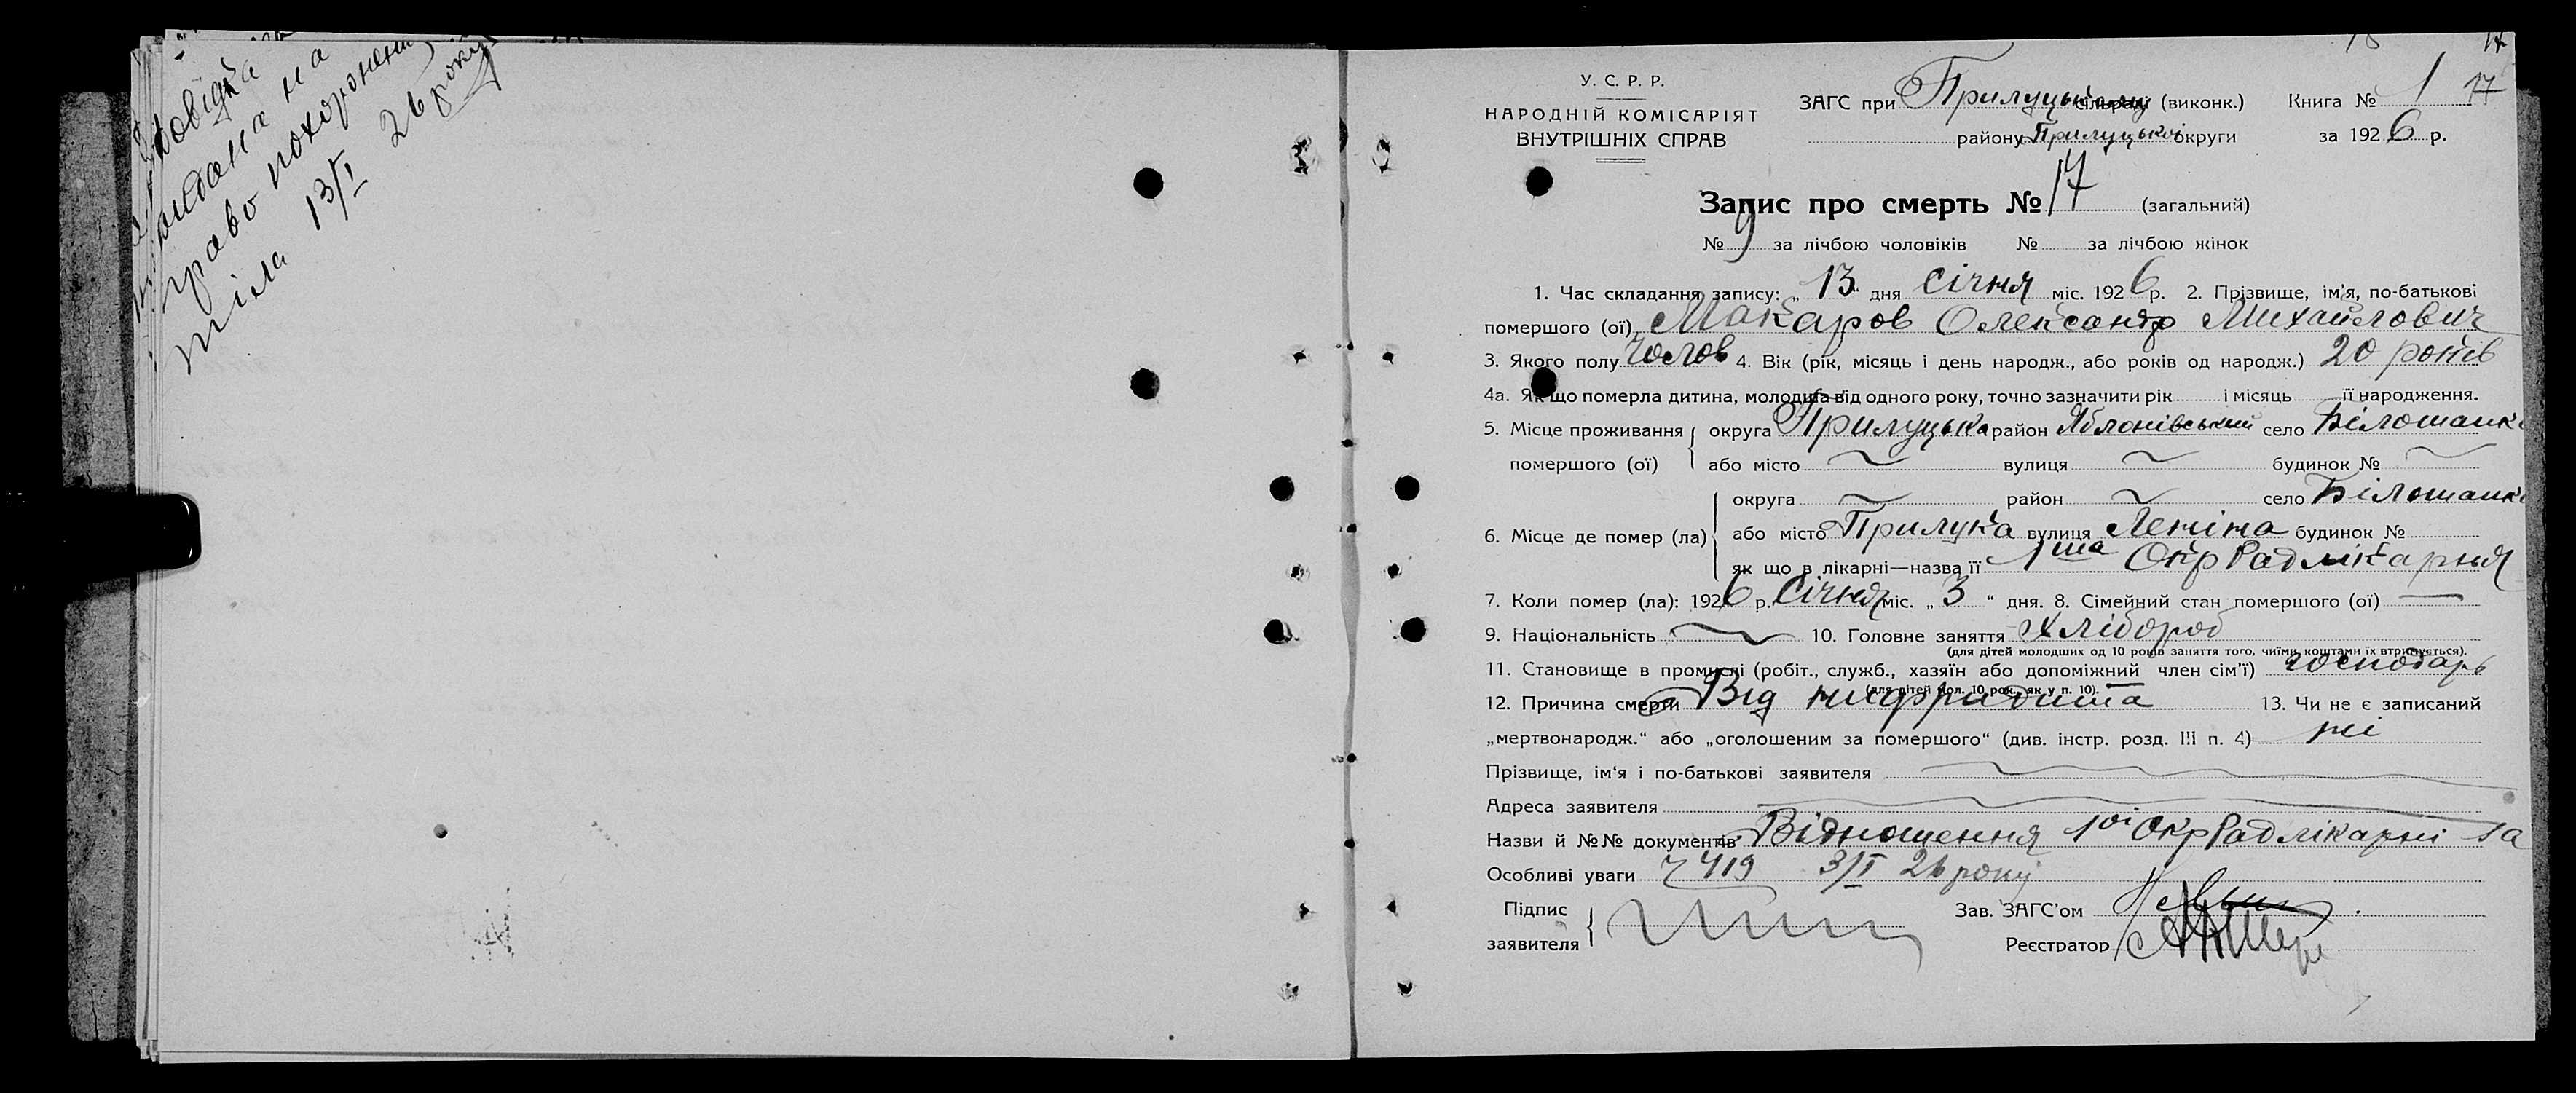 Довідка
видана на
право похоронення
тіла 13/I 26 року
17
У. С. Р. Р.
НАРОДНІЙ КОМІСАРІЯТ
ВНУТРІШНІХ СПРАВ
ЗАГС при Прилуцькому сільраді (виконк.) Книга № 1 17
району Прилуцької округи за 1926 р.
Запис про смерть № 17 (загальний)
№ 9 за лічбою чоловіків № за лічбою жінок
1. Час складання запису: „ 13 " дня січня міс. 1926 р. 2. Прізвище, ім'я, по-батькові
помершого (ої) Макаров Олександр Михайлович
3. Якого полу чолов 4. Вік (рік, місяць і день народж., або років од народж.) 20 років
4а. Як що померла дитина, молодша від одного року, точно зазначити рік і місяць її народження.
5. Місце проживання округа Прилуцька район Яблонівський село Білошапки
помершого (ої) або місто вулиця будинок №
округа район село Білошапки
6. Місце де помер (ла) або місто Прилука вулиця Леніна будинок №
як що в лікарні—назва її 1ша ОкрРадлікарня
7. Коли помер (ла): 1926 р. Січня міс. „ 3 " дня. 8. Сімейний стан помершого (ої) —
9. Національність 10. Головне заняття Хлібороб
(для дітей молодших од 10 років заняття того, чиїми коштами їх втримується).
11. Становище в промислі (робіт., служб., хазяїн або допоміжний член сім'ї) господарь
(для дітей мол. 10 рок., як у п. 10).
12. Причина смерти Від 13. Чи не є записаний
„мертвонародж." або „оголошеним за помершого" (див. інстр. розд. III п. 4) ні
Прізвище, ім'я і по-батькові заявителя
Адреса заявителя
Назви й №№ документів Відношення 1ої ОкрРадлікарні за
Особливі уваги 419 3/I 26 року
Підпис
заявителя
Зав. ЗАГС'ом
Реєстратор